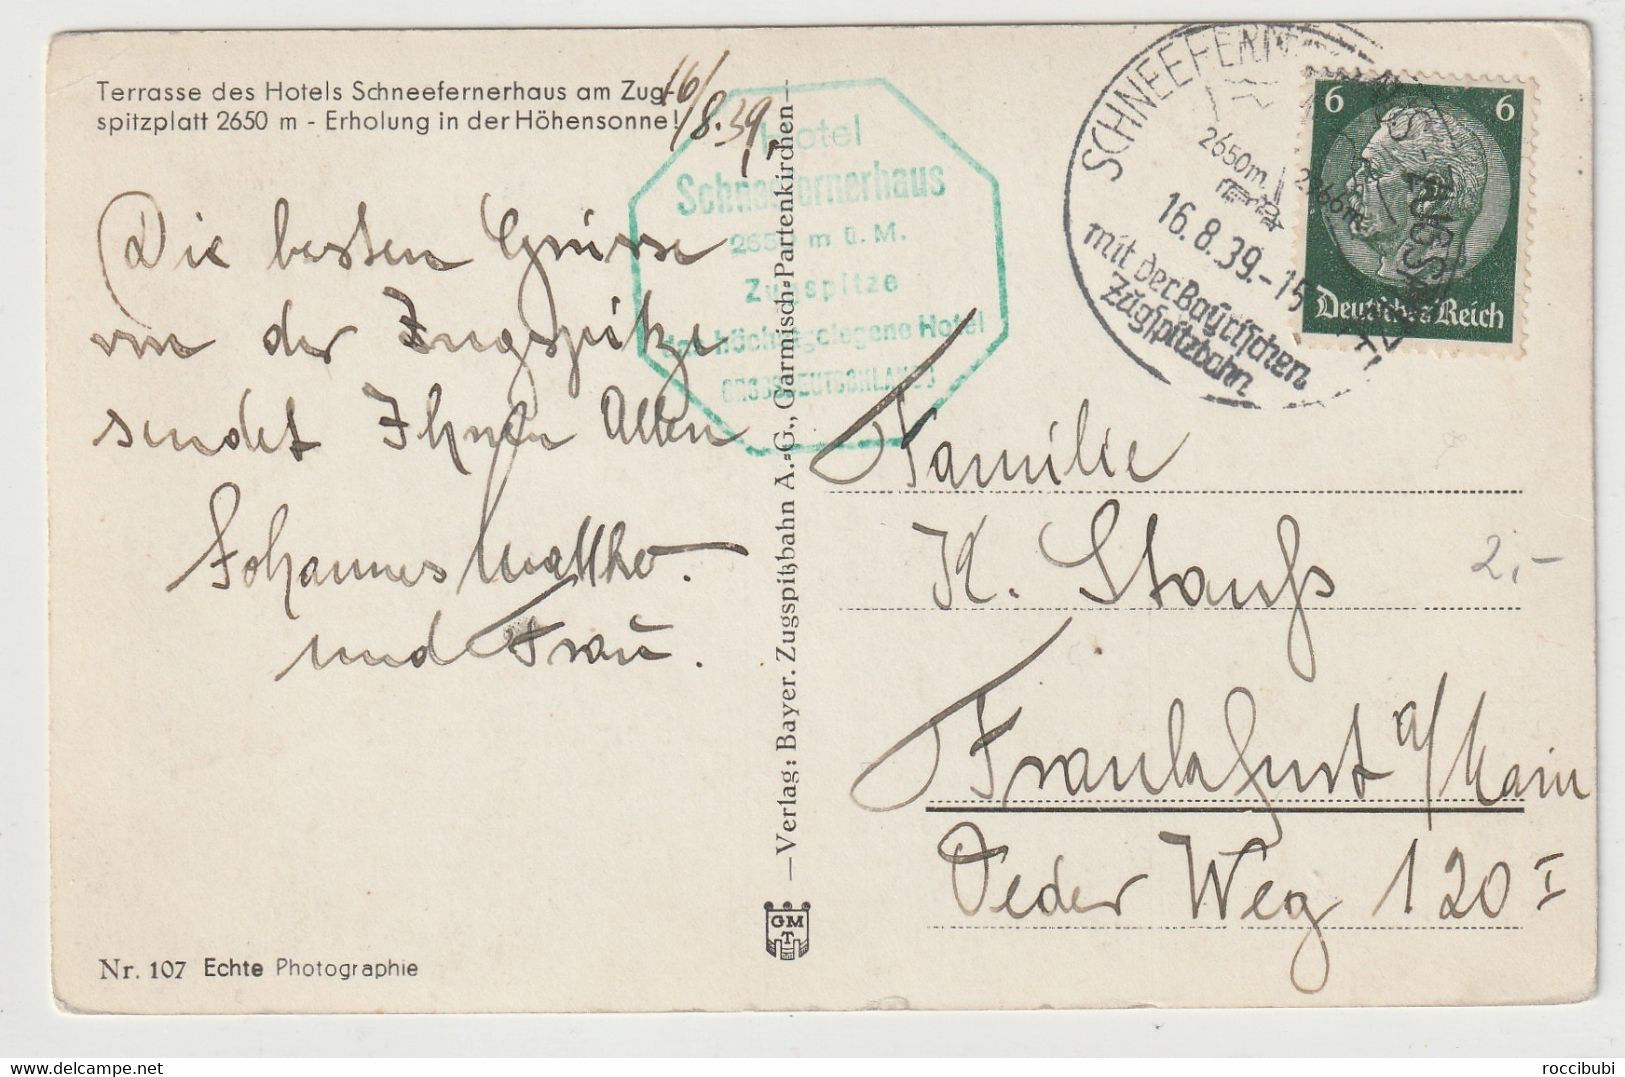 Terrasse des Hotels Schneefernerhaus am Zug-
spitzplatt 2650 m - Erholung in der Höhensonne!
16/8.39.
Die besten Grüsse
von der Zugspitze
sendet Ihnen Allen
Johannes
und Frau.
Nr. 107 Echte Photographie
Hotel
Schneefernerhaus
2650 m ü. M.
Zugspitze
das höchstgelegene Hotel
GROSSDEUTSCHLANDS
—Verlag: Bayer. Zugspitzbahn A.-G., Garmisch-Partenkirchen—
GMT
SCHNEEFERNERHAUS - ZUGSPITZE
2650m.
2966m.
16.8.39.-15
mit der Bayrischen
Zugspitzbahn
6 6
Deutsches Reich
Familie
K. Stauß
2,-
Frankfurt a/Main
Oeder Weg 120 I
www.delcampe.net
roccibubi